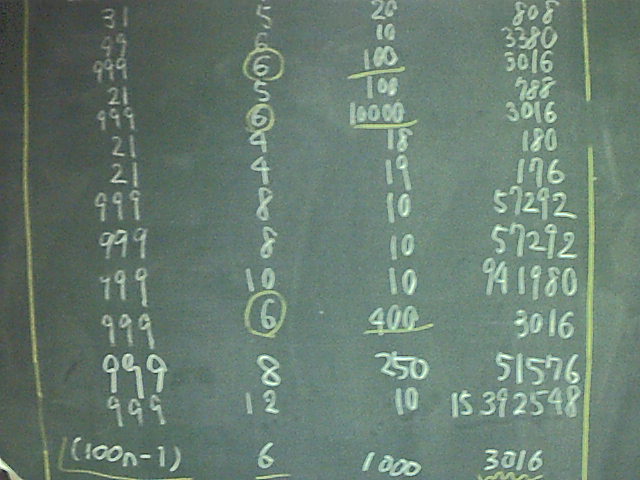 31 5 20 808
99 6 10 3380
999 6 100 3016
21 5 100 788
999 6 10000 3016
21 4 18 180
21 4 19 176
999 8 10 57292
999 8 10 57292
799 10 10 941980
999 6 400 3016
999 8 250 51576
999 12 10 15392548
(100n-1) 6 1000 3016